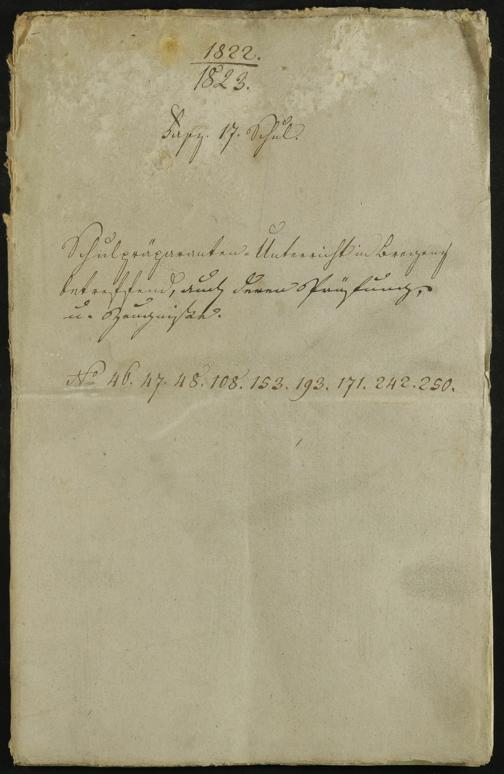 1822.
1823.
Fasz. 17. Schul.
Schulpräparanten-Unterricht in Bregenz
betreffend, auch deren Prüfung,
u. Zeugnisse.
No 46. 47. 48. 108. 153. 193. 171. 242. 250.